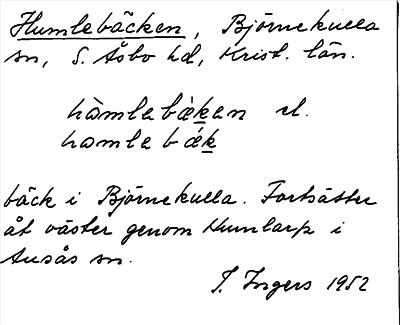 Humlebäcken, Björnekulla
sn, S. Åsbo hd, Krist. län.
hòmlebæ̀ken el.
homlebæ̀k
bäck i Björnekulla. Fortsätter
åt väster genom Humlarp i
Ausås sn.
I. Ingers 1952